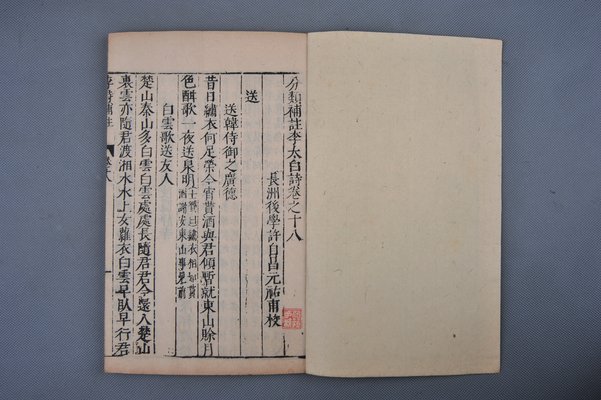 分類補註李太白詩卷之十八
長洲後學許自昌元祐甫校
送
送韓侍御之廣德
昔日繡衣何足榮今宵貰酒與君傾暫就東山賖月
色酣歌一夜送泉明
白雲歌送友人
楚山秦山多白雲白雲處處長隨君君今還入楚山
裏雲亦隨君渡湘水水上女蘿衣白雲早臥早行君